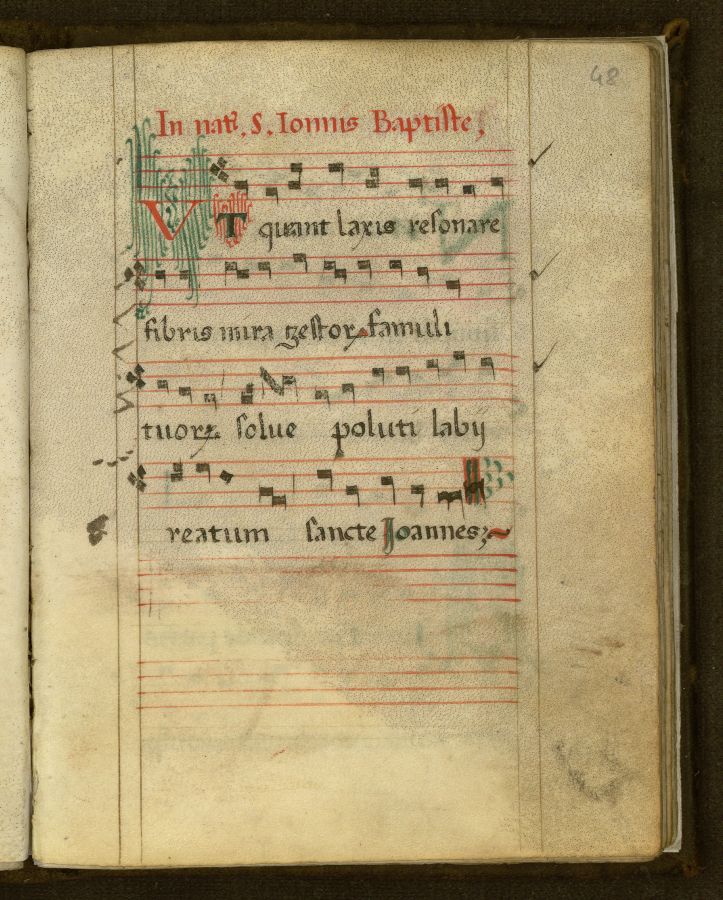 48
In nat͛. S. Ioannis Baptiste,
VT queant laxis resonare
fibris mira gestoꝝ famuli
tuoꝝ solue poluti labij
reatum sancte Joannes